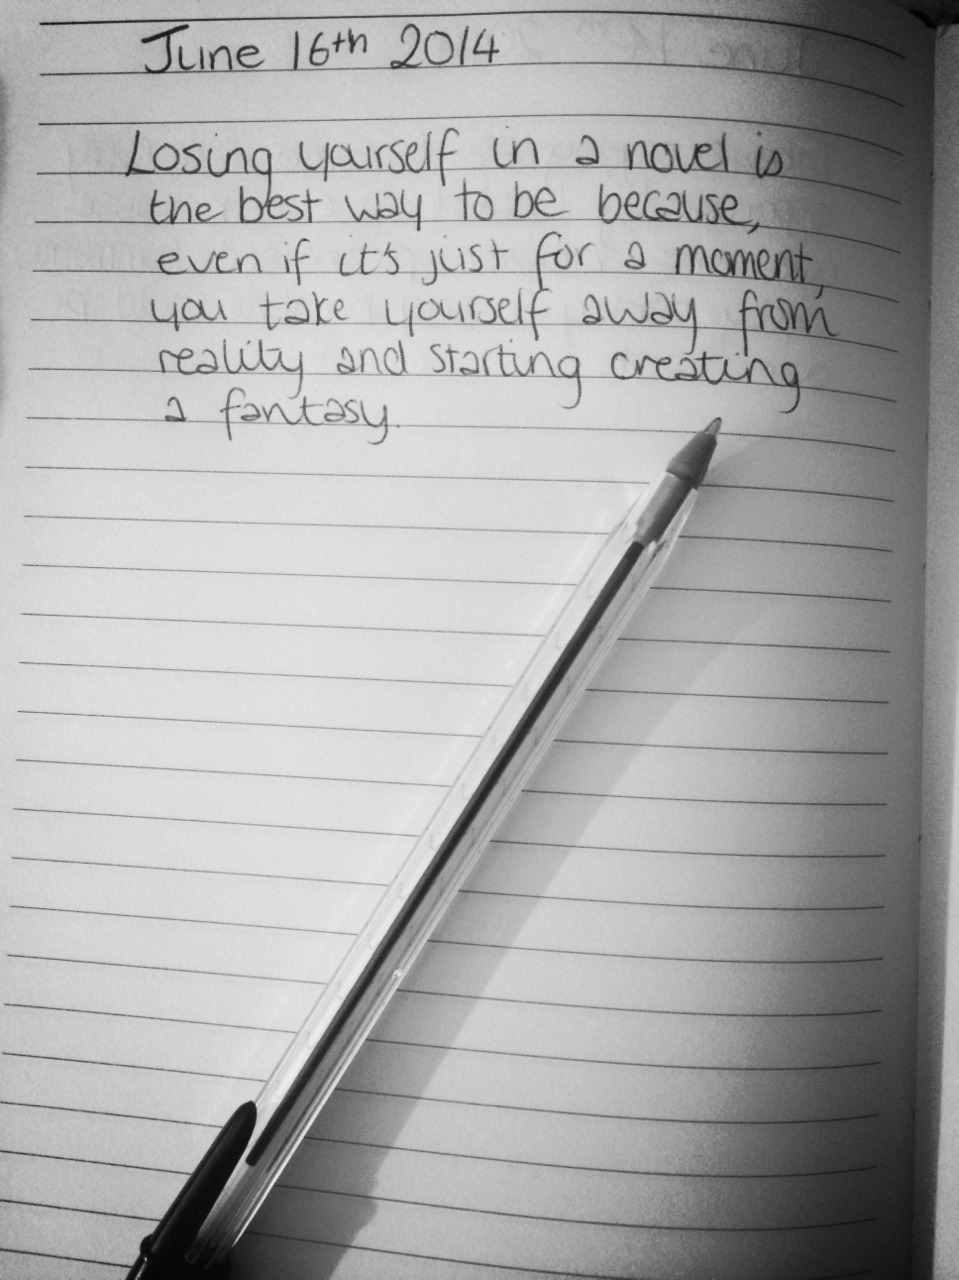 June 16th 2014
Losing yourself in a novel is
the best way to be because,
even if it's just for a moment,
you take yourself away from
reality and starting creating
a fantasy.